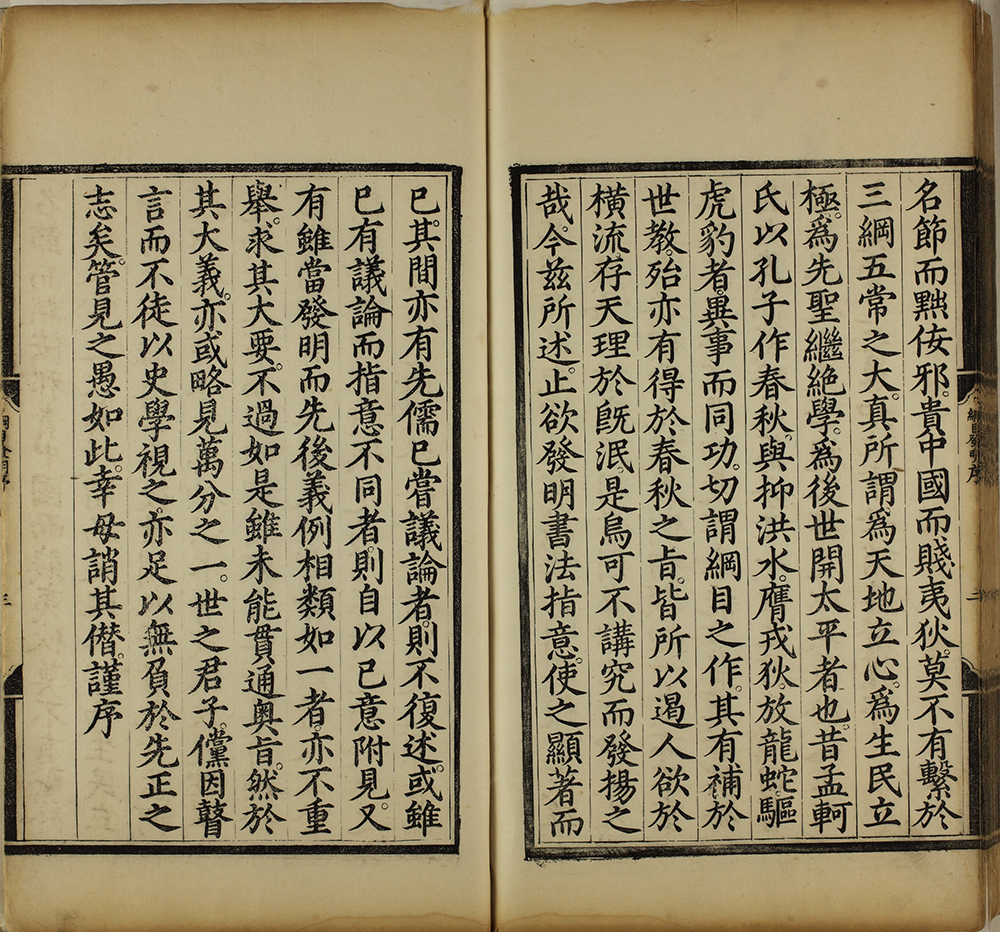 名節而黜佞邪。貴中國而賤夷狄。莫不有繫於
三綱五常之大。真所謂爲天地立心。爲生民立
極。爲先聖繼絶學。爲後世開太平者也。昔孟軻
氏以孔子作春秋。與抑洪水。膺戎狄。放龍蛇。驅
虎豹者。異事而同功。切謂綱目之作。其有補於
世教。殆亦有得於春秋之旨。皆所以遏人欲於
橫流。存天理於旣泯。是烏可不講究而發揚之
哉。今兹所述。止欲發明書法指意。使之顯著而
綱目發明序
二
已。其間亦有先儒已嘗議論者。則不復述。或雖
已有議論而指意不同者。則自以已意附見。又
有雖當發明而先後義例相類如一者。亦不重
舉。求其大要。不過如是。雖未能貫通奧旨。然於
其大義。亦或略見萬分之一。世之君子。儻因瞽
言而不徒以史學視之。亦足以無負於先正之
志矣。管見之愚如此。幸毋誚其僣。謹序
三